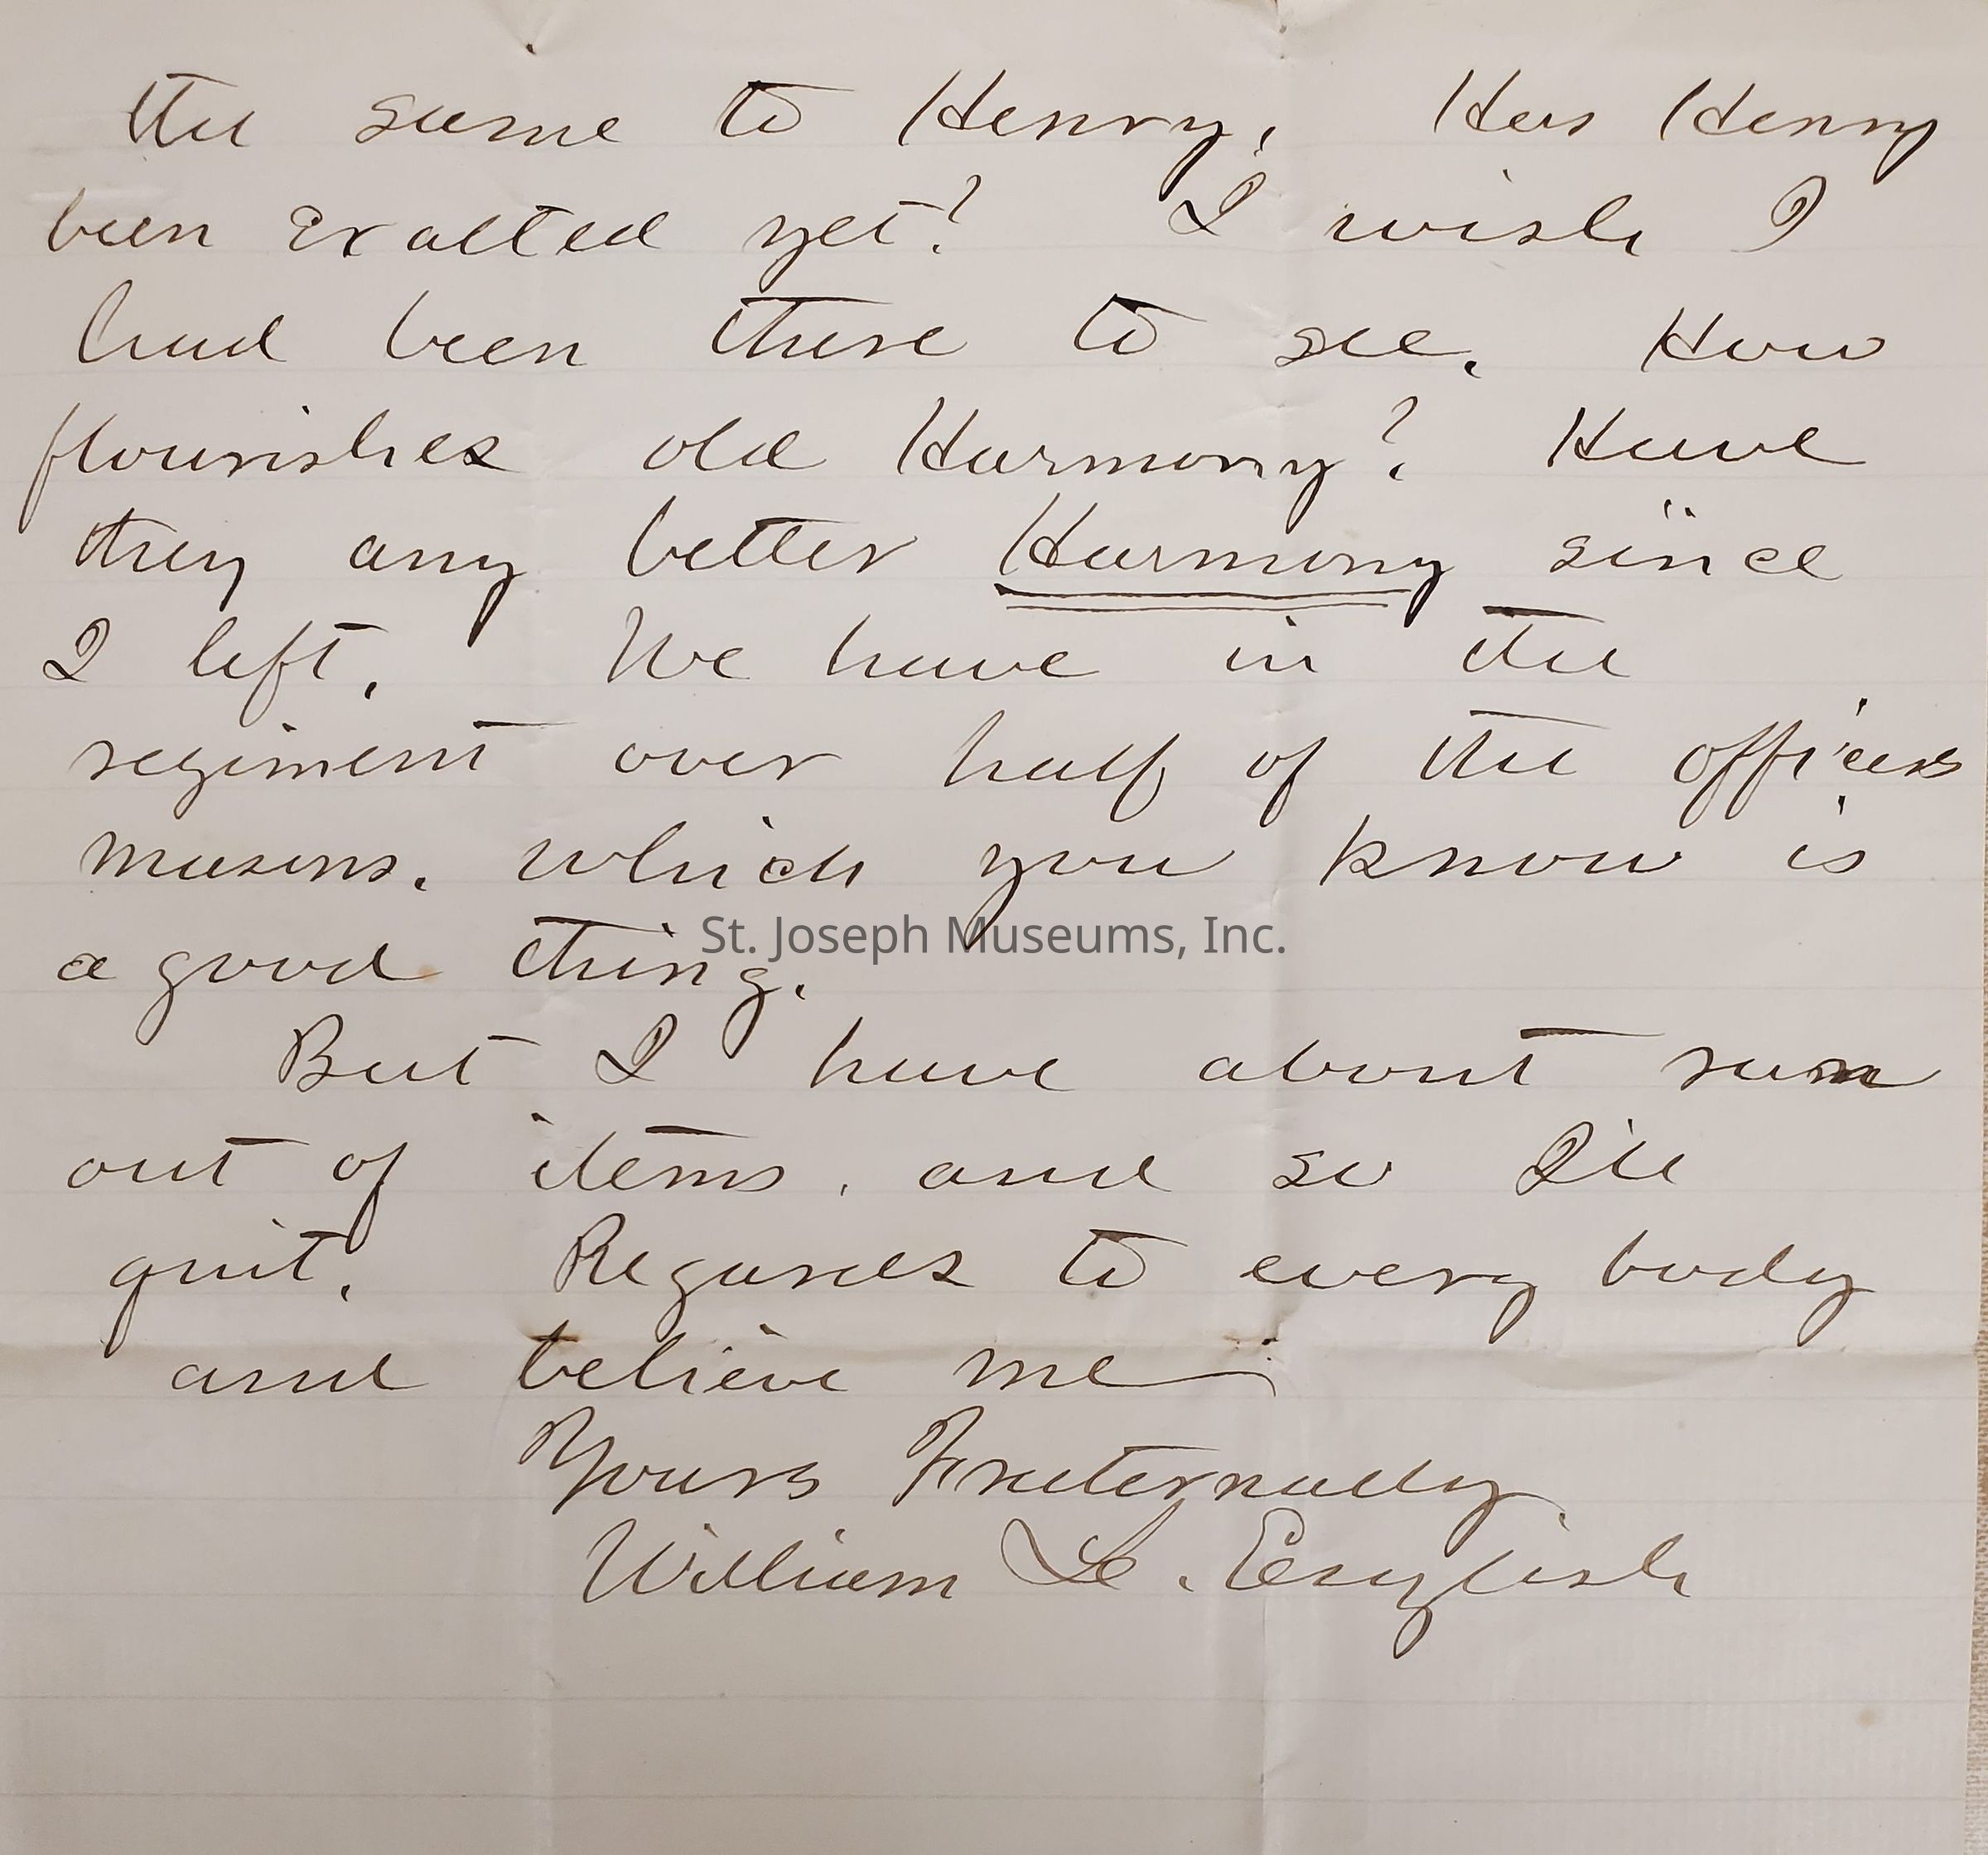 the same to Henry. Has Henry
been Exalted yet? I wish I
had been there to see. How
flourishes old Harmony? Have
they any better Harmony since
I left. We have in the
regiment over half of the officers
masons. which you know is
a good thing.
St. Joseph Museums, Inc.
But I have about run
out of items. and so I'll
quit. Regards to every body
and believe me
Yours Fraternally
William Le. English